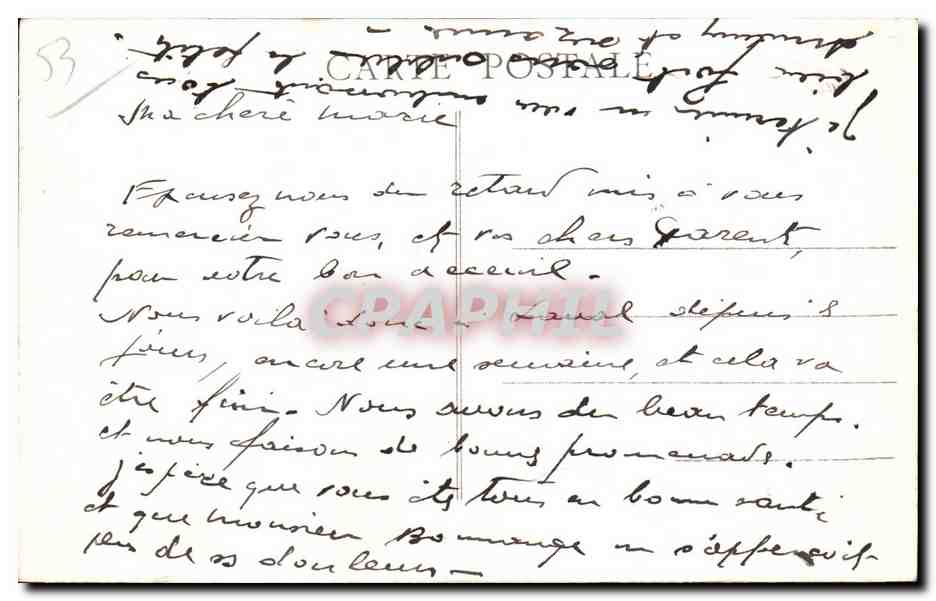 53
CARTE POSTALE
Ma chere Marie
Excusez nous du retard mis à vous
remercier vous, et vos chers Parents,
pour votre bon acceuil.
Nous voila donc a Laval depuis 8
jours, encore une semaine, et cela va
être fini. Nous avons du beau temps.
et nous faison de bonnes promenade.
j'espère que vous êtes tous en bonne santé
et que monsieur ne s'apperçoit
peu de ses douleurs
Je termine en vous embrassant tous
bien fort la petite
et
CPAPHIL